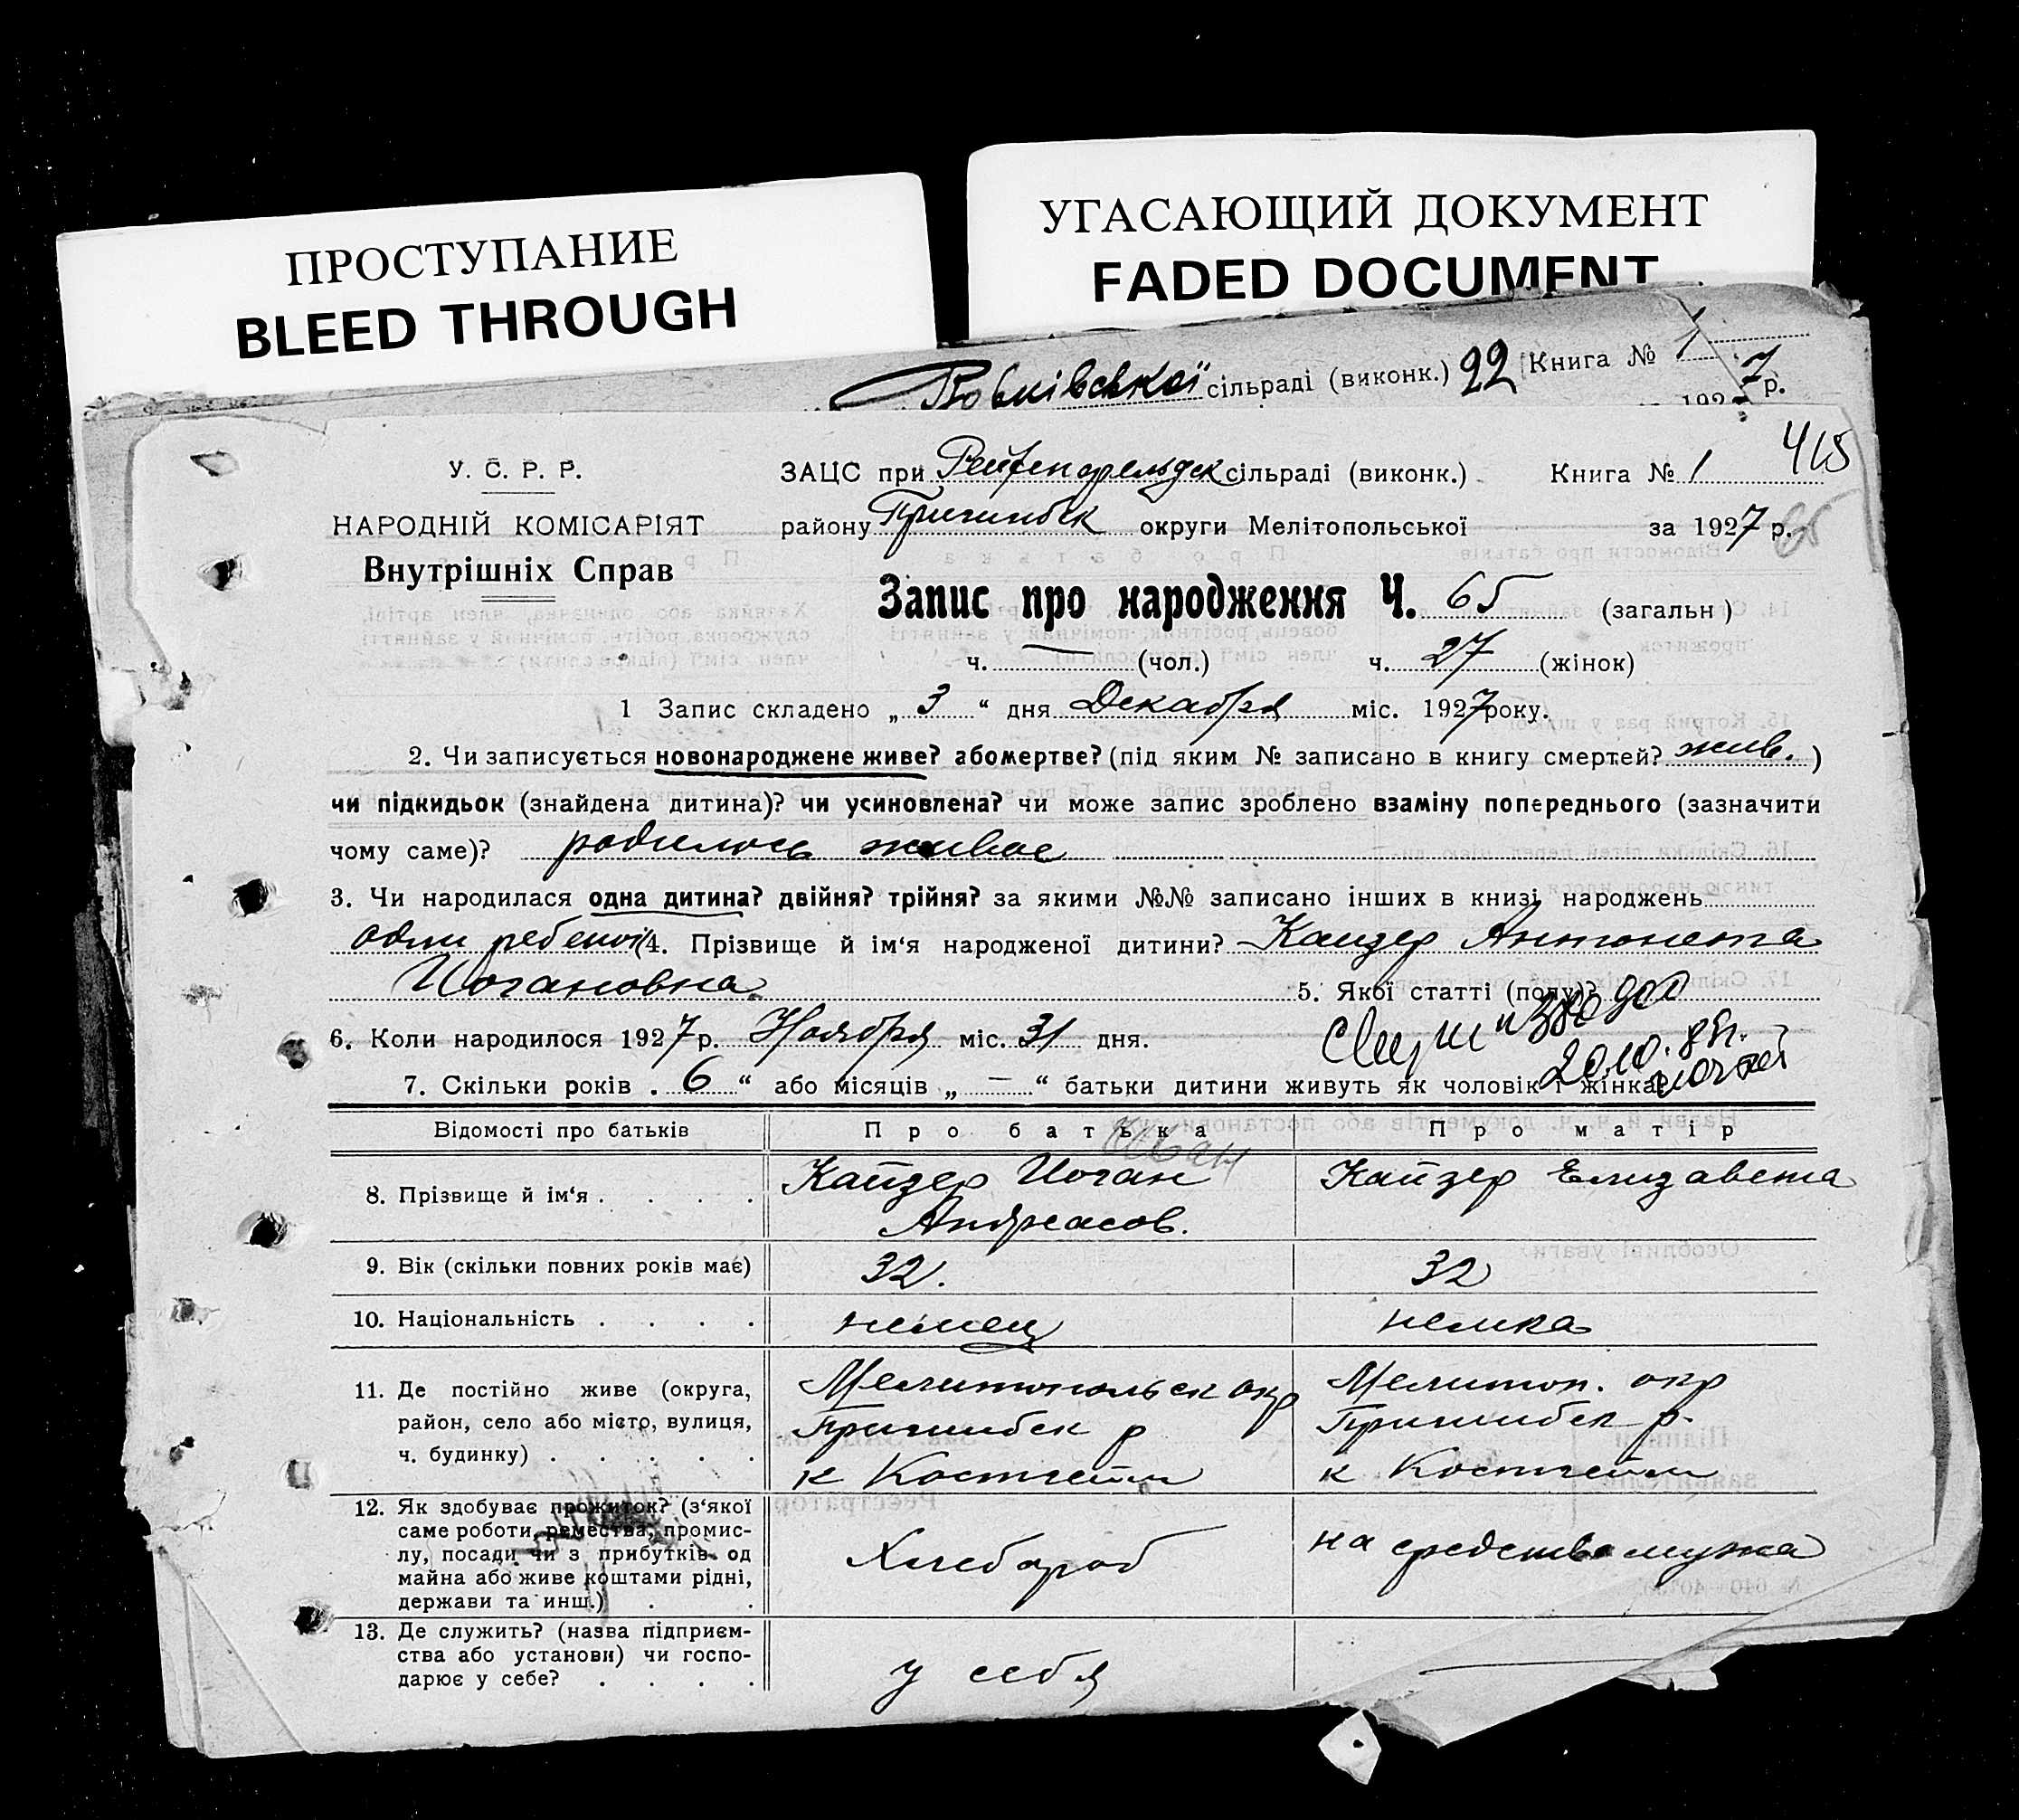 ПРОСТУПАНИЕ
BLEED THROUGH
УГАСАЮЩИЙ ДОКУМЕНТ
FADED DOCUMENT
сільраді (виконк.) 22 Книга № 1
1927 р.
415
У. С. Р. Р.
НАРОДНІЙ КОМІСАРІЯТ
Внутрішніх Справ
ЗАЦС при Рейхенфельдск сільраді (виконк.) Книга № 1
району Пришибск округи Мелітопольської за 1927 р.
65
Запис про народження Ч. 65 (загальн)
ч. — (чол.) ч. 27 (жінок)
1 Запис складено „ 3 “ дня Декабря міс. 1927 року.
2. Чи записується новонароджене живе? або мертве? (під яким № записано в книгу смертей? жив. )
чи підкидьок (знайдена дитина)? чи усиновлена? чи може запис зроблено взаміну попереднього (зазначити
чому саме)? родилось живое
3. Чи народилася одна дитина? двійня? трійня? за якими №№ записано інших в книзі народжень
4. Прізвище й ім‘я народженої дитини? Кайзер Антонета
Иогановна 5. Якої статті (полу)?
6. Коли народилося 1927 р. Ноября міс. 31 дня.
7. Скільки років „ 6 “ або місяців „ — “ батьки дитини живуть як чоловік і жінка?
Відомості про батьків Про батька Про матір
Иван
8. Прізвище й ім‘я . . . . Кайзер Иоган Кайзер Елизавета
Андреасов.
9. Вік (скільки повних років має) 32. 32
10. Національність . . . . немец немка
11. Де постійно живе (округа, Мелитопольск окр Мелитоп. окр
район, село або місто, вулиця, Пришибск р Пришибск р.
ч. будинку) . . . . . к Костгейм к Костгейм
12. Як здобуває прожиток? (з‘якої
саме роботи, ремества, промис-
лу, посади чи з прибутків од Хлебороб на средства мужа
майна або живе коштами рідні,
держави та инш.) . .
13. Де служить? (назва підприєм-
ства або установи) чи госпо-
дарює у себе? . . . . у себя —